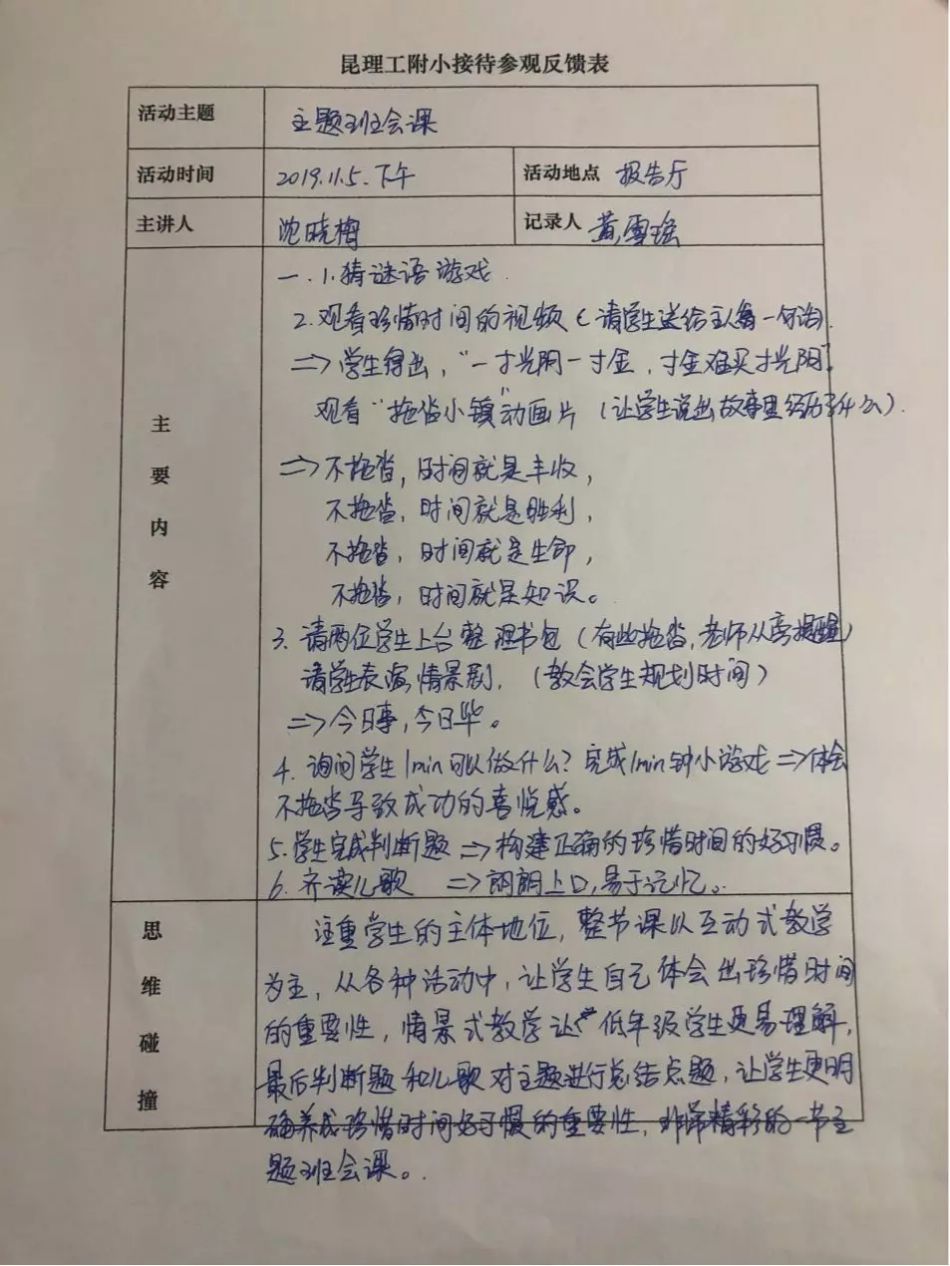 昆理工附小接待参观反馈表
活动主题 主题班会课
活动时间 2019.11.5.下午 活动地点 报告厅
主讲人 沈晓梅 记录人 黄雪瑶
主要内容
一.1.猜谜语游戏.
2.观看珍惜时间的视频(请学生送给主人翁一句话).
=>学生得出,"一寸光阴一寸金,寸金难买寸光阴".
观看"拖沓小镇"动画片(让学生说出故事里经历了什么).
=>不拖沓,时间就是丰收,
不拖沓,时间就是胜利,
不拖沓,时间就是生命,
不拖沓,时间就是知识。
3.请两位学生上台整理书包(有些拖沓,老师从旁提醒)
请学生表演情景剧.(教会学生规划时间)
=>今日事,今日毕。
4.询问学生1min可以做什么?完成1min钟小游戏=>体会
不拖沓导致成功的喜悦感。
5.学生完成判断题=>构建正确的珍惜时间的好习惯。
6.齐读儿歌 =>朗朗上口,易于记忆。
思维碰撞
注重学生的主体地位,整节课以互动式教学
为主,从各种活动中,让学生自己体会出珍惜时间
的重要性,情景式教学让低年级学生更易理解,
最后判断题和儿歌对主题进行总结点题,让学生更明
确养成珍惜时间好习惯的重要性,非常精彩的一节主
题班会课。